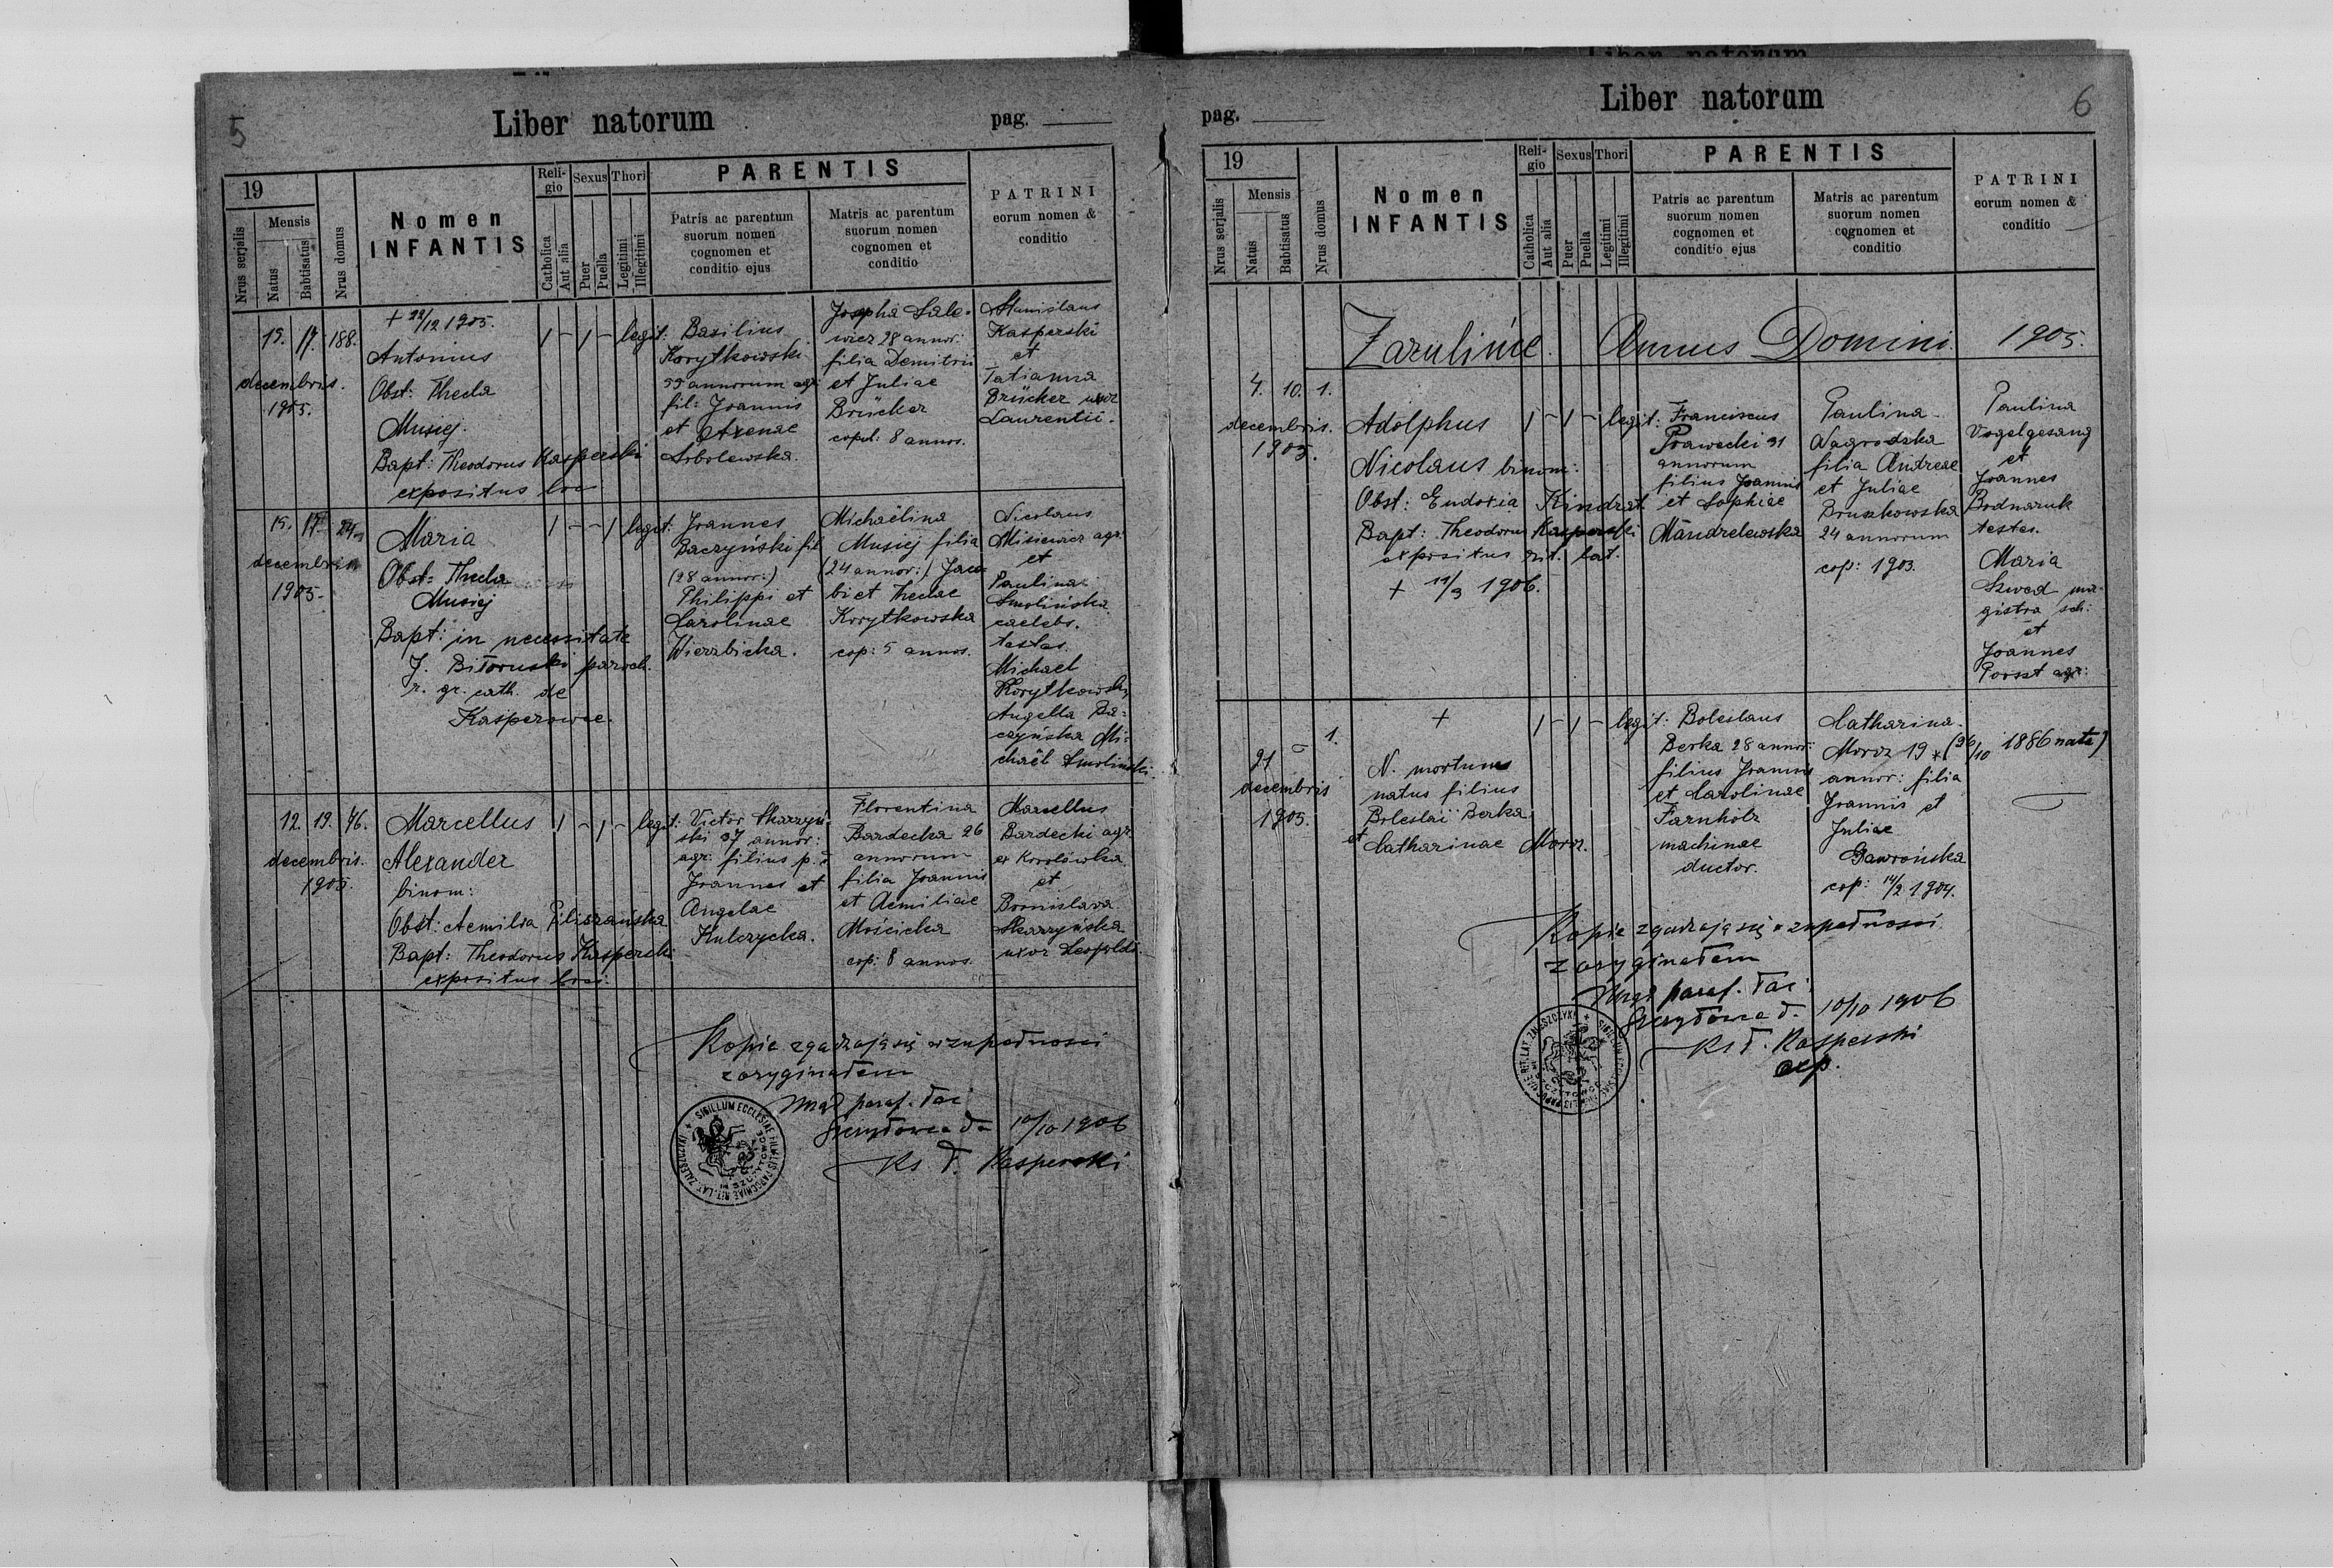 5
Liber natorum
pag.
19
Nrus serjalis
Mensis
Natus
Babtisatus
Nrus domus
Nomen
INFANTIS
Reli-
gio
Catholica
Aut alia
Sexus
Puer
Puella
Thori
Legitimi
Illegitimi
PARENTIS
Patris ac parentum
suorum nomen
cognomen et
conditio ejus
Matris ac parentum
suorum nomen
cognomen et
conditio
PATRINI
eorum nomen &
conditio
15. 17. 188.
decembris.
1905.
+ 22/12 1905.
Antonius
Obst: Thecla
Musiej.
Bapt: Theodorus Kasperski
expositus loci
1 - 1 - legit:
Basilius
Korytkowski
55 annorum agr.
fil: Joannis
et Axenae
Sobolewska.
Josepha Sale-
wicz 28 annor:
filia Demitrii
et Juliae
Brücker
copul: 8 annos.
Stanislaus
Kasperski
et
Tatianna
Brücker uxor
Laurentii.
15. 17.
decembris
1905.
Maria
Obst: Thecla
Musiej
Bapt: in necessitate
J. Bitoruski paroch.
r. gr. cath. de
Kasperowce.
1 - - 1 legit:
Joannes
Baczyński fil
(28 annor:)
Philippi et
Carolinae
Wierzbicka.
Michaëlina
Musiej filia
(24 annor:) Jaco-
bi et Theclae
Korytkowska
cop: 5 annos.
Nicolaus
Misiewicz agr:
et
Paulina
Smolińska
caelebs.
testes.
Michael
Korytkowski,
Angella Ba-
czyńska Mi-
chaël Smolinski.
12. 19. 46.
decembris.
1905.
Marcellus
Alexander
binom:
Obst: Aemilia Piliszańska
Bapt: Theodorus Kasperski
expositus loci.
1 - 1 - legit:
Victor Skarzyń-
ski 37 annor:
agr. filius p. d
Joannes et
Angelae
Kulczycka.
Florentina
Bardecka 26
annorum
filia Joannis
et Aemiliae
Mościcka
cop: 8 annos.
Marcellus
Bardecki agr.
ex Korolówka
et
Bronislava
Skarzyńska
uxor Leopoldi.
Kopie zgadzają się w zupełności
z oryginałem
Urząd paraf. łac
Szczytowce d. 10/10 1906
Ks T. Kasperski
SIGILLUM ECCLESIAE FILIALIS PAROCHIAE RIT. LAT. ZALESZCZYKI
IN SZCZYTOWCE
Liber natorum
pag.
Liber natorum
6
19
Nrus serjalis
Mensis
Natus
Babtisatus
Nrus domus
Nomen
INFANTIS
Reli-
gio
Catholica
Aut alia
Sexus
Puer
Puella
Thori
Legitimi
Illegitimi
PARENTIS
Patris ac parentum
suorum nomen
cognomen et
conditio ejus
Matris ac parentum
suorum nomen
cognomen et
conditio
PATRINI
eorum nomen &
conditio
Zazulińce. Annus Domini. 1905.
4. 10. 1.
decembris.
1905.
Adolphus
Nicolaus binom:
Obst: Eudoxia Kindrat.
Bapt: Theodorus Kasperski
expositus rit. lat.
+ 11/3 1906.
1 - 1 - legit:
Franciscus
Prawecki 31
annorum
filius Joannis
et Sophiae
Mandrelewska
Paulina
Nagrodzka
filia Andreae
et Juliae
Bruszkowska
24 annorum
cop: 1903.
Paulina
Vogelgesang
et
Joannes
Bodnaruk
testes.
Maria
Szwed ma-
gistra sch:
et
Joannes
Porszt agr:
21 - 1.
decembris
1905.
+
N. mortuus
natus filius
Boleslai Berka
et Catharinae Moroz.
1 - 1 - legit:
Boleslaus
Berka 28 annor:
filius Joannis
et Carolinae
Farnholz
machinae
ductor.
Catharina
Moroz 19 * (26/10 1886 nata)
annor: filia
Joannis et
Juliae
Gawrońska
cop: 14/2 1904.
Kopie zgadzają się w zupełności
z oryginałem
Urząd paraf. łac:
Szczytowce d. 10/10 1906
Ks T. Kasperski
exp.
SIGILLUM ECCLESIAE FILIALIS PAROCHIAE RIT. LAT. ZALESZCZYKI
IN SZCZYTOWCE